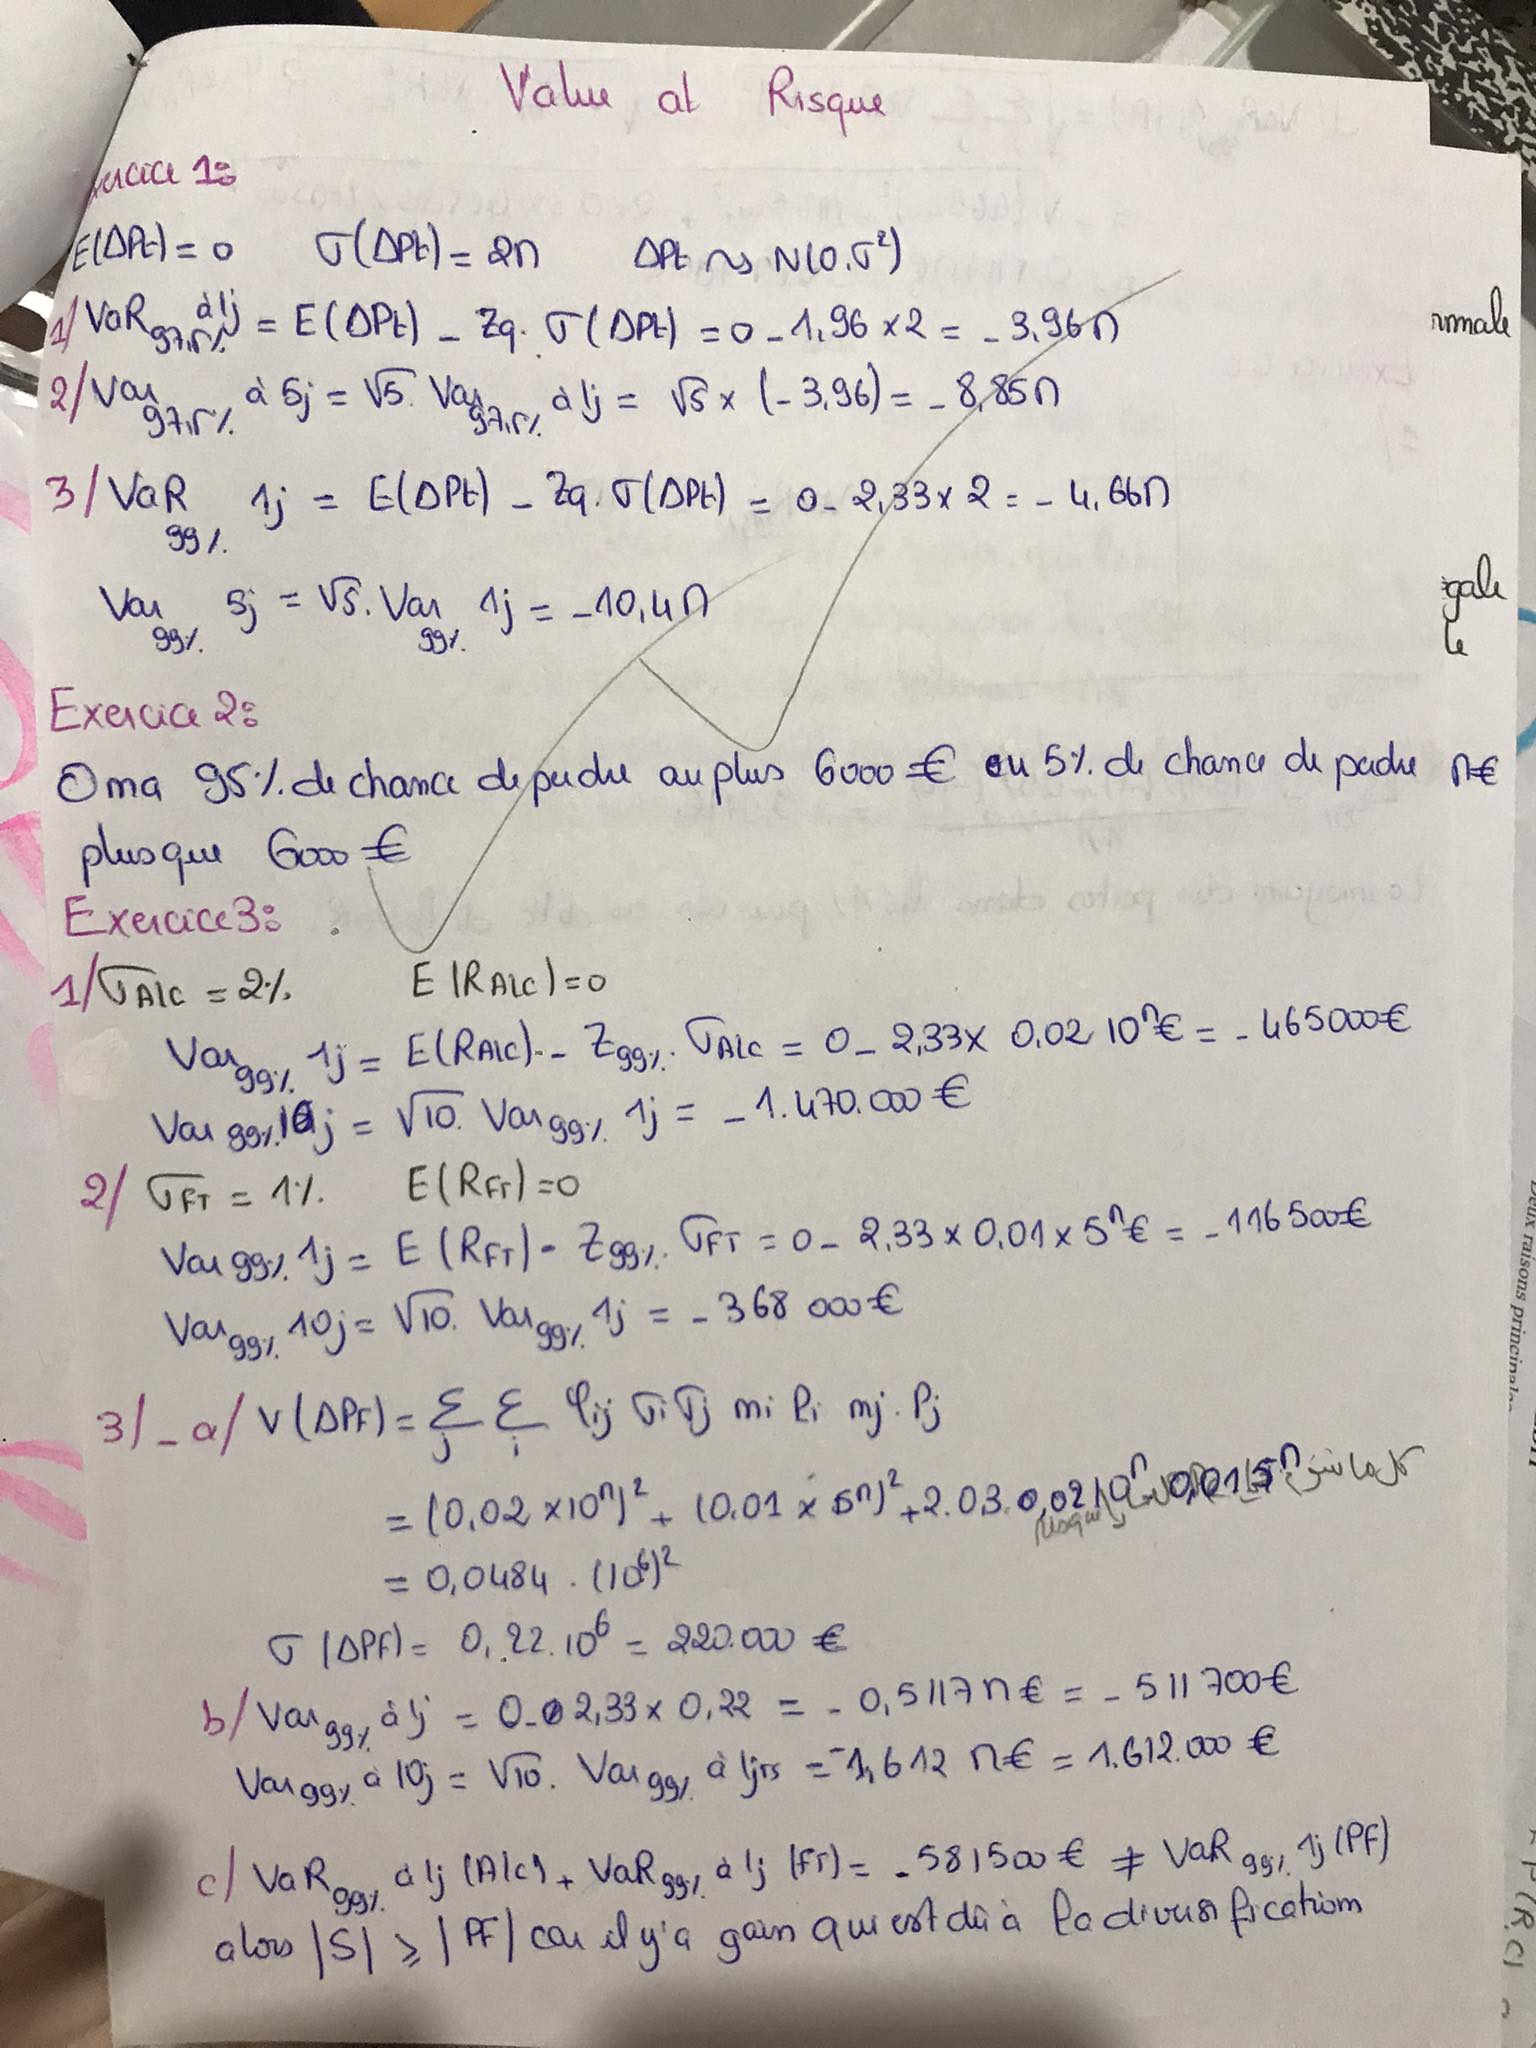 Value at Risque
Exercice 1:
E(ΔPt) = 0 σ(ΔPt) = 2M ΔPt ~> N(0.σ²)
1/ VaR97,5% à 1j = E(ΔPt) - Zq. σ(ΔPt) = 0 - 1,96 × 2 = - 3,96M
2/ Var97,5% à 5j = √5. Var97,5% à 1j = √5 × (- 3,96) = - 8,85M
3/ VaR99% 1j = E(ΔPt) - Zq. σ(ΔPt) = 0 - 2,33 × 2 = - 4,66M
Var99% 5j = √5. Var99% 1j = - 10,4M
Exercice 2:
On a 95% de chance de perdre au plus 6000 € ou 5% de chance de perdre
plus que 6000 €
Exercice 3:
1/ σAlc = 2% E(RAlc) = 0
Var99% 1j = E(RAlc) - Z99%. σAlc = 0 - 2,33 × 0,02 10M€ = - 465000€
Var99% 10j = √10. Var99% 1j = - 1.470.000 €
2/ σFT = 1% E(RFT) = 0
Var99% 1j = E(RFT) - Z99%. σFT = 0 - 2,33 × 0,01 × 5M€ = - 116500€
Var99% 10j = √10. Var99% 1j = - 368 000 €
3/ - a/ V(ΔPF) = Σj Σi ρij σi σj ni Pi nj. Pj
= (0,02 × 10M)² + (0.01 × 5M)² + 2.03.0,02 10M 0,01 5M
= 0,0484 . (10⁶)²
σ(ΔPF) = 0,22.10⁶ = 220.000 €
b/ Var99% à 1j = 0 - 2,33 × 0,22 = - 0,5117 M€ = - 511 700€
Var99% à 10j = √10. Var99% à 1jrs = -1,612 M€ = 1.612.000 €
c/ VaR99% à 1j (Alc) + VaR99% à 1j (FT) = - 581500 € ≠ VaR99% 1j (PF)
alors |S| ≥ |PF| car il y'a gain qui est dû à la diversification
rmale
gale
le
M€
Deux raisons principales